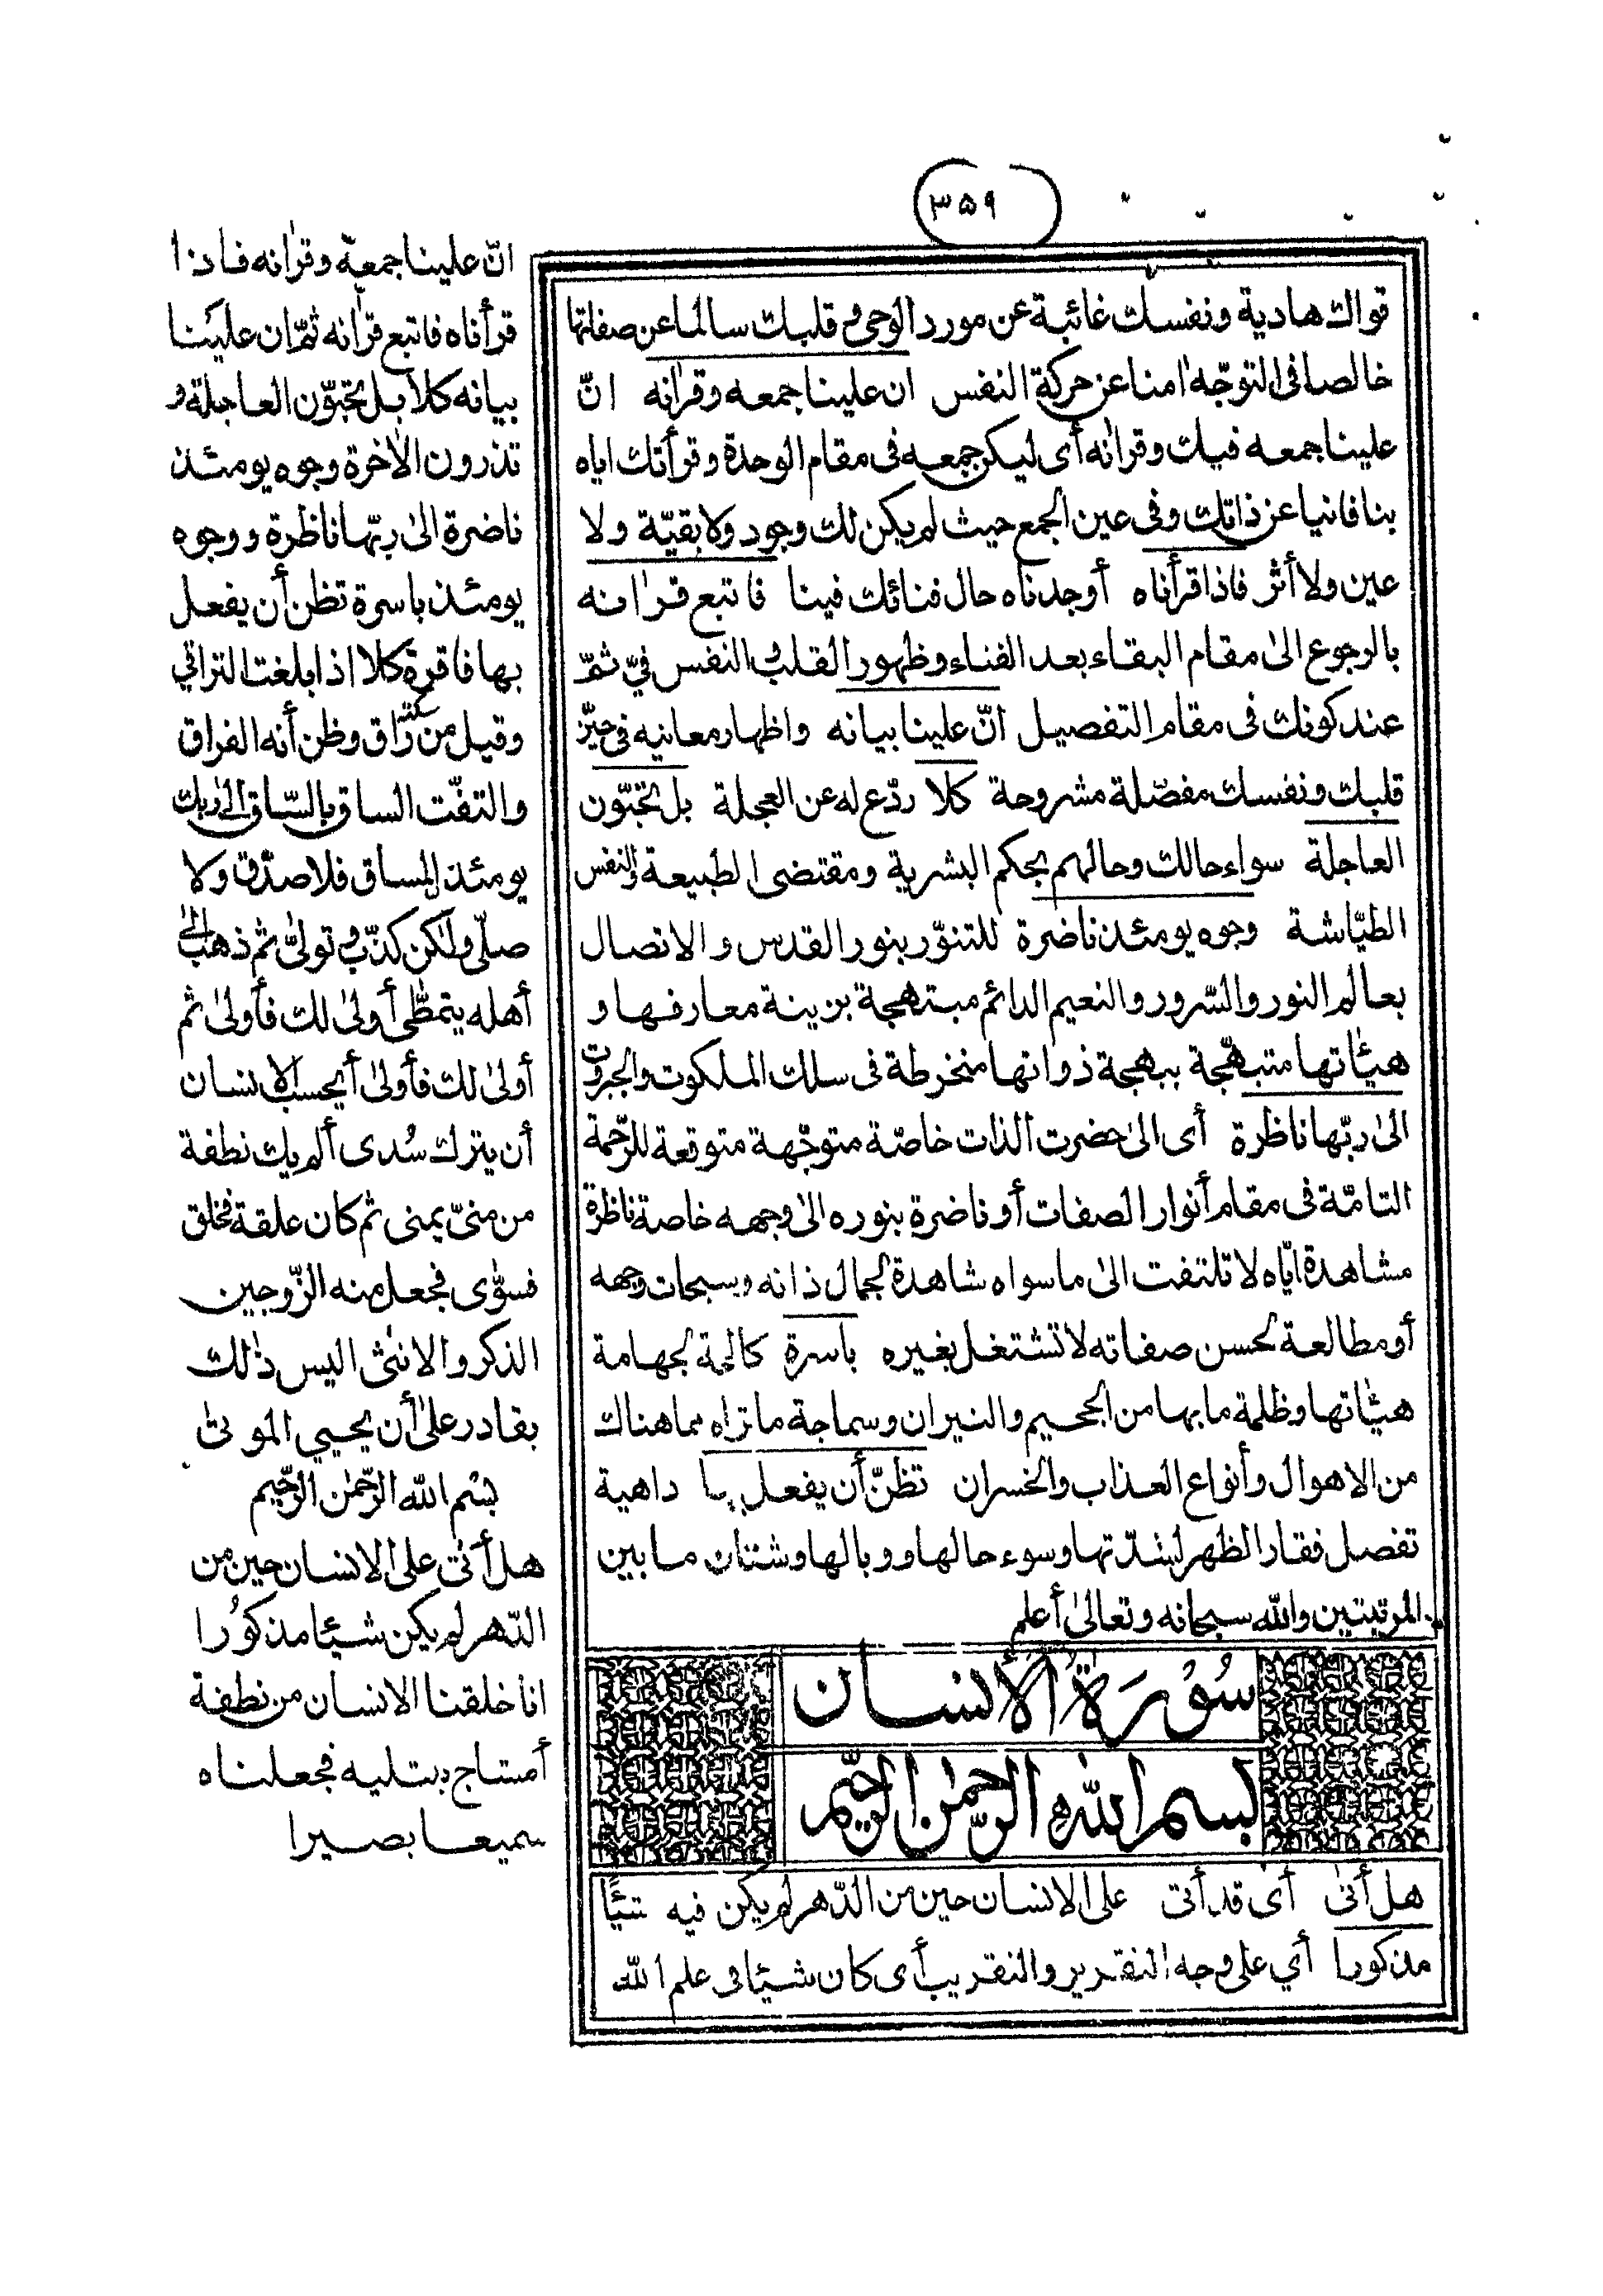 ٣٥٩
قواك هادية ونفسك غائبة عن مورد الوحى و قلبك سالما عن صفاتها
خالصا فى التوجّه اٰمنا عن حركة النفس ان علينا جمعه وقراٰنه انّ
علينا جمعه فيك وقراٰنه أى ليكن جمعه فى مقام الوحدة وقرأتك اياه
بنا فانيا عن ذاتك وفى عين الجمع حيث لم يكن لك وجود ولا بقيّة ولا
عين ولا أثر فاذا قرأناه أوجدناه حال فنائك فينا فاتبع قراٰنه
بالرجوع الىٰ مقام البقاء بعد الفناء وظهور القلب والنفس فيّ ثمّ
عند كونك فى مقام التفصيل انّ علينا بيانه واظهار معانيه فى حيّز
قلبك ونفسك مفصّلة مشروحة كلا ردّع له عن العجلة بل تحبّون
العاجلة سواء حالك وحالهم بحكم البشرية ومقتضى الطبيعة والنفس
الطيّاشة وجوه يومئذ ناضرة للتنوّر بنور القدس والاتصال
بعالم النور والسّرور والنعيم الدائم مبتهجة بزينة معارفها و
هيئاتها متبهّجة ببهجة ذواتها منخرطة فى سلك الملكوت والجبروت
الىٰ ربّها ناظرة أى الىٰ حضرت الذات خاصّة متوجّهة متوقعة للرّحمة
التامّة فى مقام أنوار الصفات أو ناضرة بنوره الىٰ وجهه خاصة ناظرة
مشاهدة ايّاه لا تلتفت الىٰ ما سواه شاهدة لجمال ذاته وسبحات وجهه
أو مطالعة لحسن صفاته لا تشتغل بغيره باسرة كالحة لجهامة
هيئاتها وظلمة ما بها من الجحيم والنيران وسماجة ما تراه مما هناك
من الاهوال وأنواع العذاب والخسران تظنّ أن يفعل بها داهية
تفصل فقار الظهر لشدّتها وسوء حالها ووبالها وشتان ما بين
المرتبتين والله سبحانه وتعالىٰ أعلم
سُوْرَةُ الْأِنسان
بسم الله الرّحمٰن الرّحيم
هل أتىٰ أى قد أتى على الانسان حين من الدّهر لم يكن فيه شيئًا
مذكورا أي على وجه التقرير والتقريب أى كان شيئا فى علم الله
انّ علينا جمعه وقراٰنه فاذا
قرأناه فاتبع قراٰنه ثمّ ان علينا
بيانه كلا بل تحبّون العاجلة و
تذرون الاٰخرة وجوه يومئذ
ناضرة الىٰ ربّها ناظرة ووجوه
يومئذ باسرة تظن أن يفعل
بها فاقرة كلا اذا بلغت التراقي
وقيل من سكتة راق وظن أنه الفراق
والتفّت الساق بالسّاق الىٰ ربك
يومئذ المساق فلا صدّق ولا
صلّى ولٰكن كذّب وتولىّٰ ثم ذهب الىٰ
أهله يتمطّى أولىٰ لك فأولىٰ ثم
أولىٰ لك فأولىٰ أيحسب الانسان
أن يترك سُدى ألم يك نطفة
من منىّ يمنى ثم كان علقة فخلق
فسوّٰى فجعل منه الزّوجين
الذكر والانثىٰ اليس ذٰلك
بقادر علىٰ أن يحيي الموتىٰ
بسْم الله الرّحمٰن الرّحيم
هل أتىٰ على الانسان حين من
الدّهر لم يكن شيئا مذكوُرا
انا خلقنا الانسان من نطفة
أمشاج نبتليه فجعلناه
سميعا بصيرا